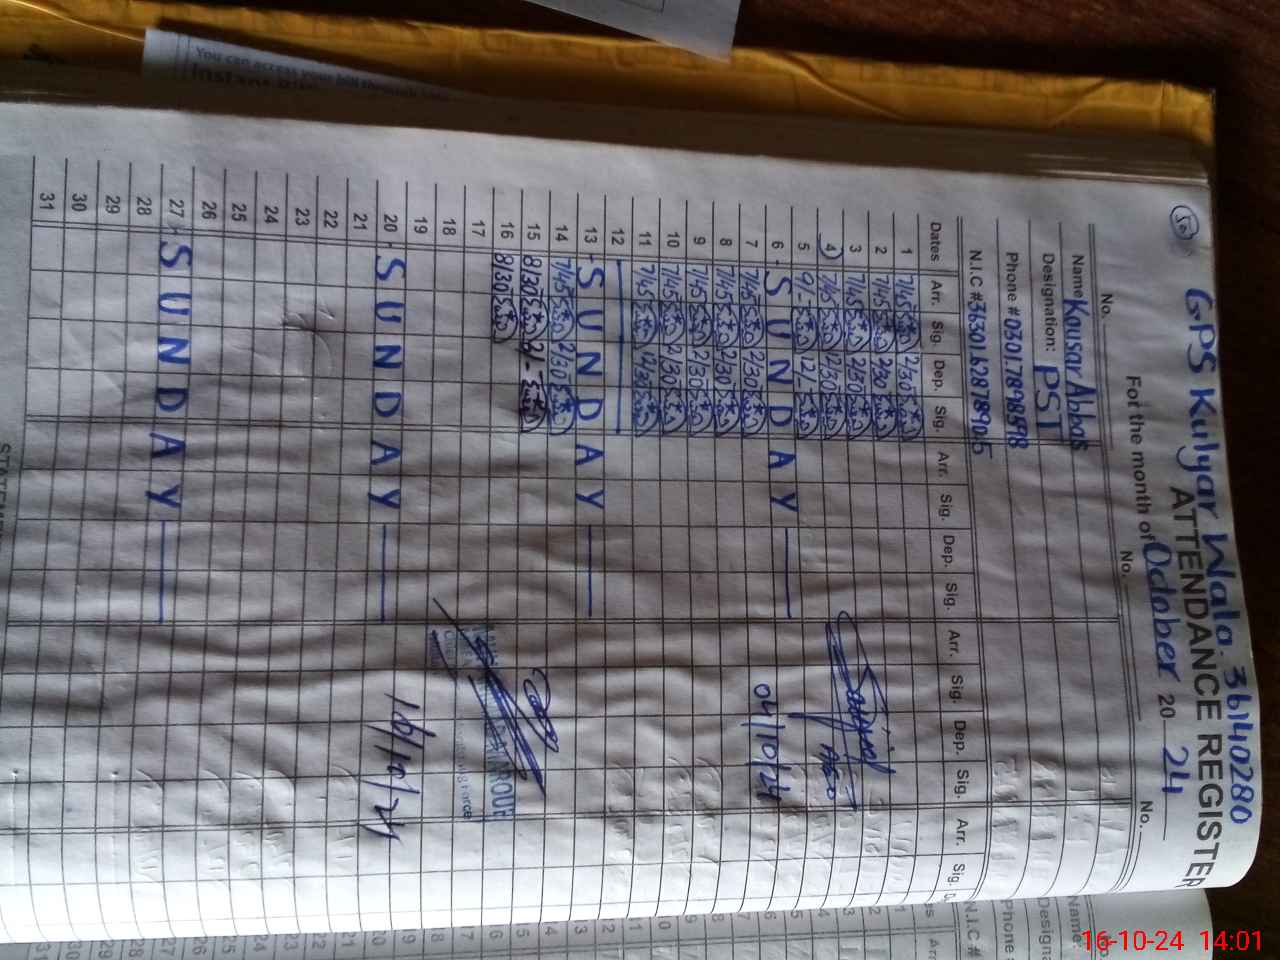 GPS Kulyar Wala. 36140280
ATTENDANCE REGISTER
50
For the month of October 2024
No. No. No.
Name Kausar Abbas
Designation: PST
Phone # 03017898598
N.I.C #
Dates Arr. Sig. Dep. Sig. Arr. Sig. Dep. Sig. Arr. Sig. Dep. Sig. Arr. Sig.
1 7/45 2/30
2 7/45 2/30
3 7/45 2/30
4 7/45 12/30
5 9/- 12/-
6 SUNDAY
7 7/45 2/30
8 7/45 2/30
9 7/45 2/30
10 7/45 2/30
11 7/45 12/30
12
13 SUNDAY
14 7/45 2/30
15 8/30 2/-
16 8/30
17
18
19
20 SUNDAY
21
22
23
24
25
26
27 SUNDAY
28
29
30
31
AEO
04/10/24
16/10/24
You can access your bill through
16-10-24 14:01